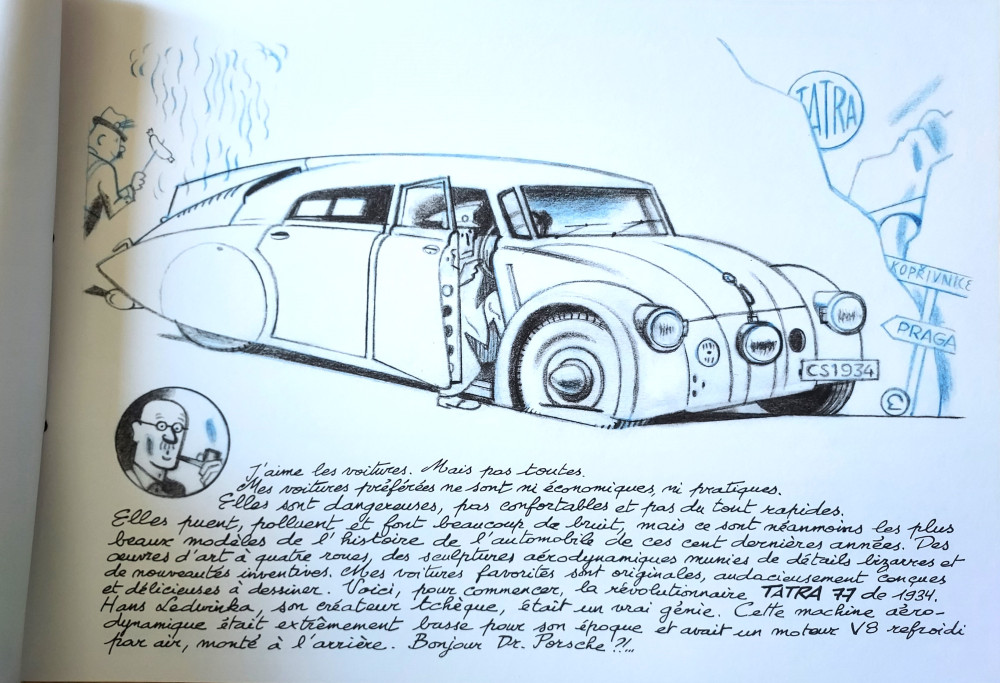 TATRA
KOPŘIVNICE
PRAGA
CS1934
J'aime les voitures. Mais pas toutes.
Mes voitures préférées ne sont ni économiques, ni pratiques.
Elles sont dangereuses, pas confortables et pas du tout rapides.
Elles puent, polluent et font beaucoup de bruit, mais ce sont néanmoins les plus
beaux modèles de l'histoire de l'automobile de ces cent dernières années. Des
œuvres d'art à quatre roues, des sculptures aérodynamiques munies de détails bizarres et
de nouveautés inventives. Mes voitures favorites sont originales, audacieusement conçues
et délicieuses à dessiner. Voici, pour commencer, la révolutionnaire TATRA 77 de 1934.
Hans Ledwinka, son créateur tchèque, était un vrai génie. Cette machine aéro-
dynamique était extrêmement basse pour son époque et avait un moteur V8 refroidi
par air, monté à l'arrière. Bonjour Dr. Porsche ?!...